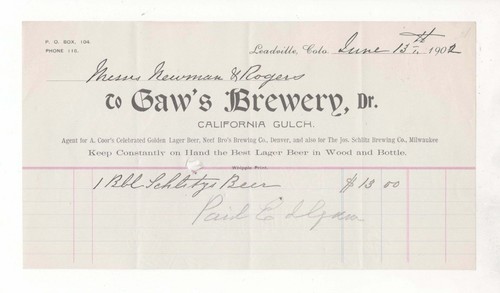 P. O. BOX, 104
PHONE 110.
Leadville, Colo. June 13th 1902
Messrs Newman & Rogers
To Gaw's Brewery, Dr.
CALIFORNIA GULCH.
Agent for A. Coor's Celebrated Golden Lager Beer, Neef Bro's Brewing Co., Denver, and also for The Jos. Schlitz Brewing Co., Milwaukee
Keep Constantly on Hand the Best Lager Beer in Wood and Bottle.
Print.
1 Bbl Schlitz's Beer $13 00
Paid